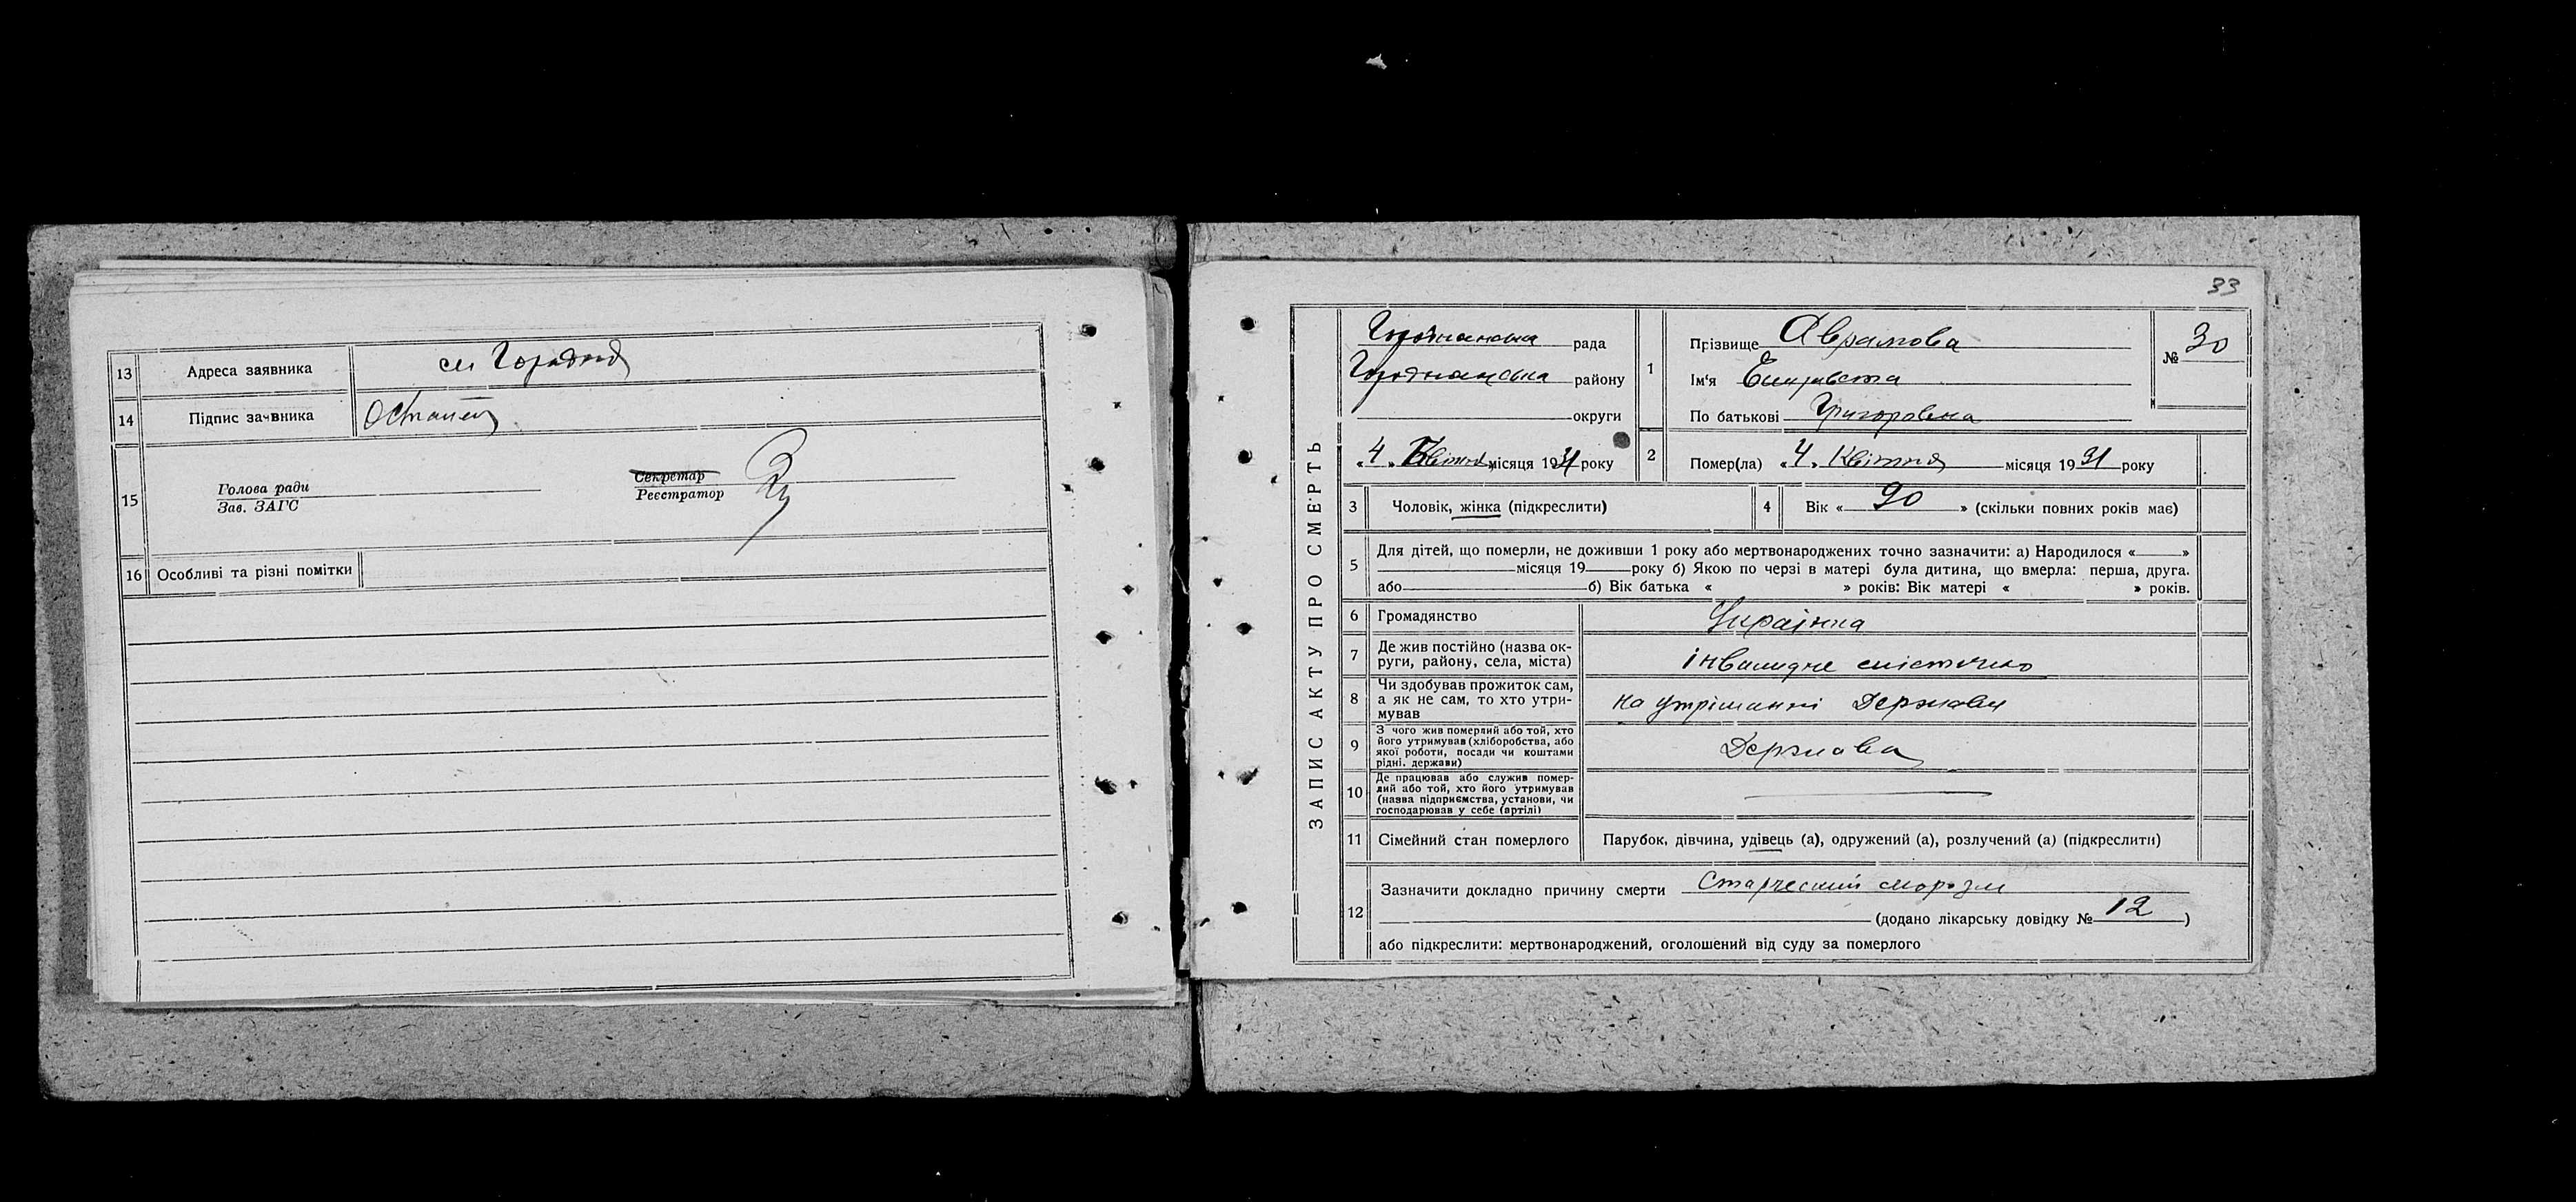 13 Адреса заявника см Городня
14 Підпис заявника Остапец
15 Голова ради
Зав. ЗАГС
Секретар
Реєстратор
16 Особливі та різні помітки
33
ЗАПИС АКТУ ПРО СМЕРТЬ
Городнянська рада
Городнянська району
округи
« 4 » Квітня місяця 1931 року
1 Прізвище Аврамова
Ім'я Елизавета
По батькові Григоровна
№ 30
2 Помер(ла) « 4 » Квітня місяця 1931 року
3 Чоловік, жінка (підкреслити)
4 Вік « 90 » (скільки повних років має)
5 Для дітей, що померли, не доживши 1 року або мертвонароджених точно зазначити: а) Народилося « »
місяця 19 року б) Якою по черзі в матері була дитина, що вмерла: перша, друга.
або б) Вік батька « » років: Вік матері « » років.
6 Громадянство Українка
7 Де жив постійно (назва ок-
руги, району, села, міста)
8 Чи здобував прожиток сам,
а як не сам, то хто утри-
мував
на утріманні Держави
9 З чого жив померлий або той, хто
його утримував (хліборобства, або
якої роботи, посади чи коштами
рідні, держави)
Держава
10 Де працював або служив помер-
лий або той, хто його утримував
(назва підприємства, установи, чи
господарював у себе (артілі)
11 Сімейний стан померлого Парубок, дівчина, удівець (а), одружений (а), розлучений (а) (підкреслити)
12 Зазначити докладно причину смерти Старческий
(додано лікарську довідку № 12 )
або підкреслити: мертвонароджений, оголошений від суду за померлого